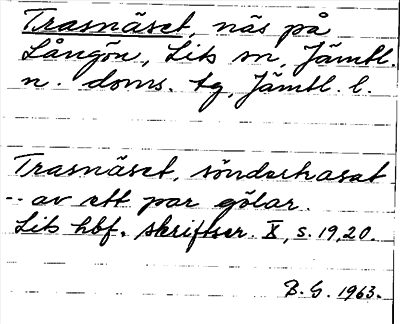 Trasnäset, näs på
Långön, Lits sn, Jämtl.
n. doms. tg, Jämtl. l.
Trasnäset, sönderhasat
-- av ett par gölar.
Lits hbf. skriftser. X, s. 19, 20.
B. G. 1963.